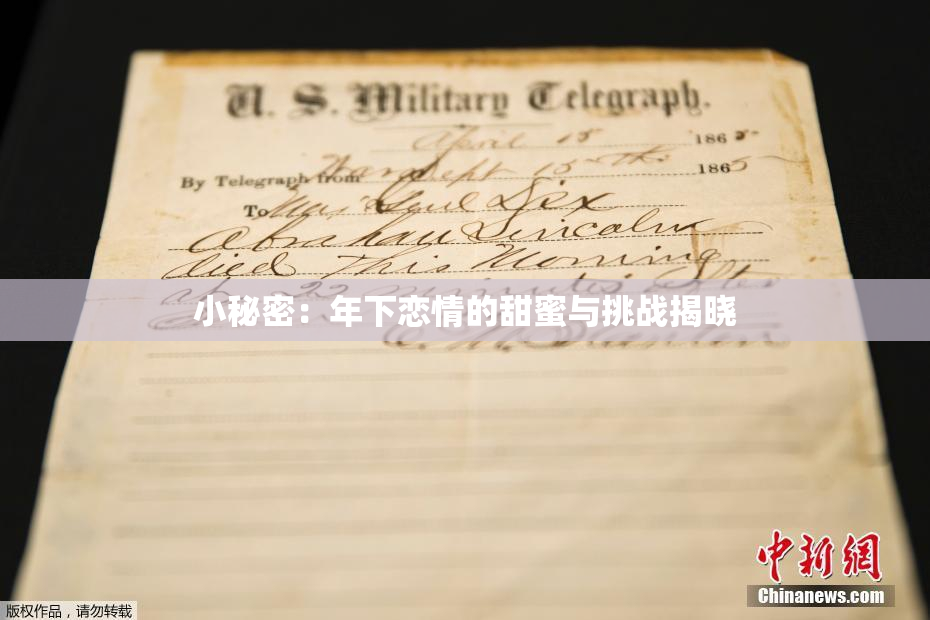 U. S. Military Telegraph.
April 15 1865
By Telegraph from War Dept 15th 1865
To Maj Genl Dix
Abraham Lincoln
died This Morning
at 22 minutes after
小秘密：年下恋情的甜蜜与挑战揭晓
中新网
Chinanews.com
版权作品，请勿转载